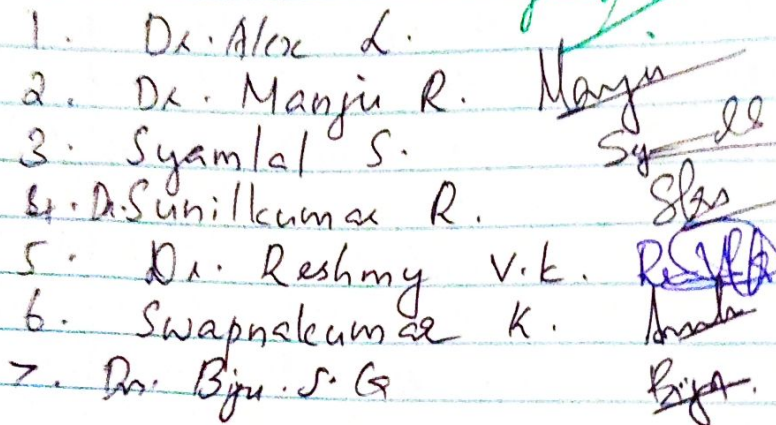 1. Dr. Alex L.
2. Dr. Manju R. Manju
3. Syamlal S.
4. Dr. Sunilkumar R.
5. Dr. Reshmy V.K.
6. Swapnakumar K.
7. Dr. Biju. S. G Biju